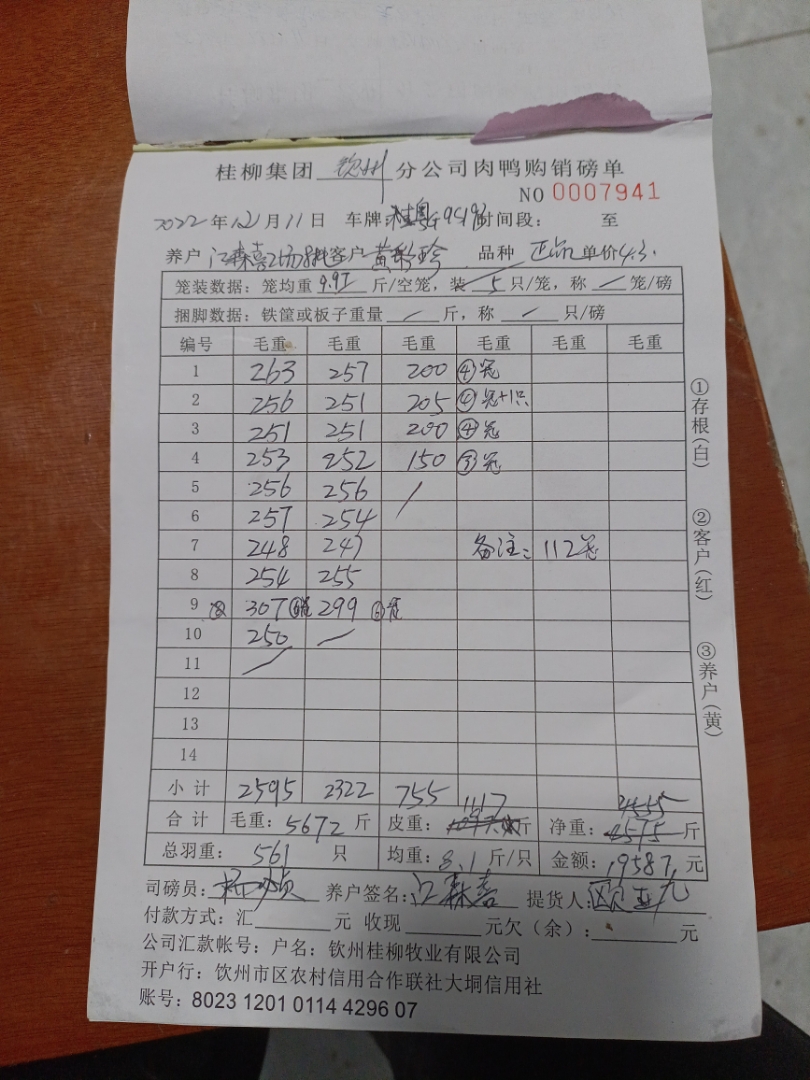 桂柳集团 钦州 分公司肉鸭购销磅单
NO 0007941
2022年12月11日 车牌: 时间段: 至
养户 江森喜 客户 黄彩珍 品种 单价4.3.
笼装数据: 笼均重 9.97 斤/空笼, 装 5 只/笼, 称 / 笼/磅
捆脚数据: 铁筐或板子重量 / 斤, 称 / 只/磅
编号 毛重 毛重 毛重 毛重 毛重 毛重
1 263 257 200 ④笼
2 256 251 205 ④笼+1只
3 251 251 200 ④笼
4 253 252 150 ③笼
5 256 256 /
6 257 254
7 248 247 备注: 112笼
8 254 255
9 307 ⑥笼 299 ⑥笼
10 250 /
11 /
12
13
14
小计 2595 2322 755
合计 毛重: 5672 斤 皮重: 1117 斤 净重: 4555 斤
总羽重: 561 只 均重: 8.1 斤/只 金额: 19587 元
司磅员: 养户签名: 江森喜 提货人: 欧亚九
付款方式: 汇 元 收现 元欠(余): 元
公司汇款帐号: 户名: 钦州桂柳牧业有限公司
开户行: 钦州市区农村信用合作联社大垌信用社
账号: 8023 1201 0114 4296 07
①存根(白)
②客户(红)
③养户(黄)